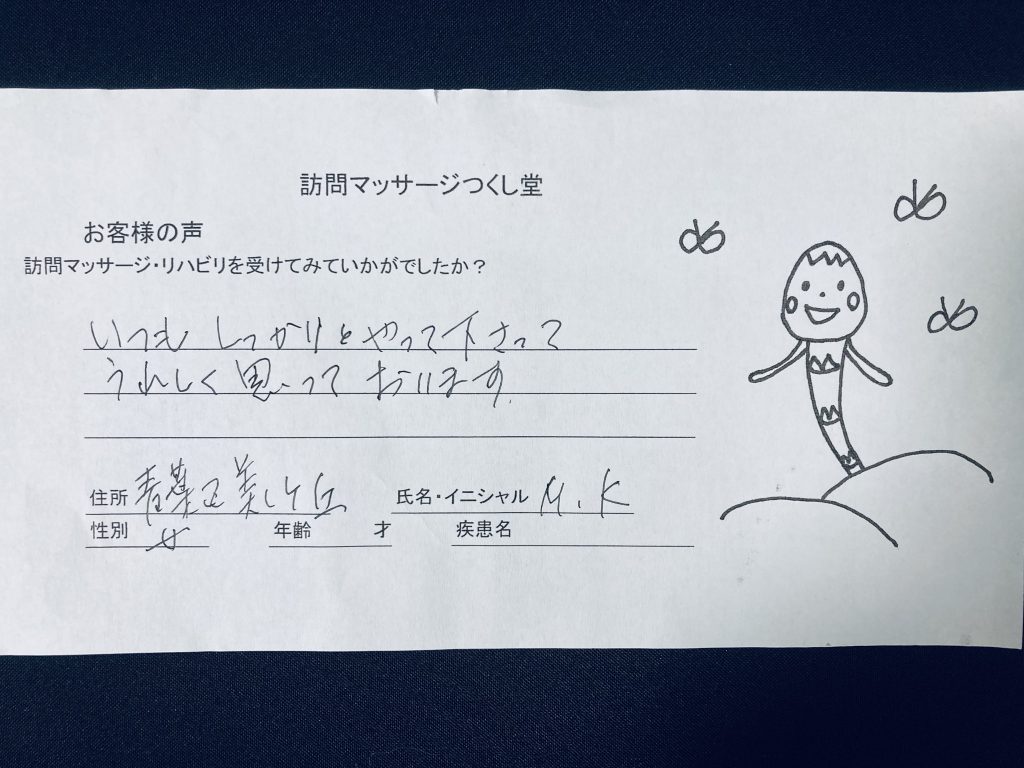 訪問マッサージつくし堂
お客様の声
訪問マッサージ・リハビリを受けてみていかがでしたか？
いつも しっかりとやって下さって
うれしく思って おります。
住所 青葉区美しが丘 氏名・イニシャル M.K
性別 女 年齢 才 疾患名